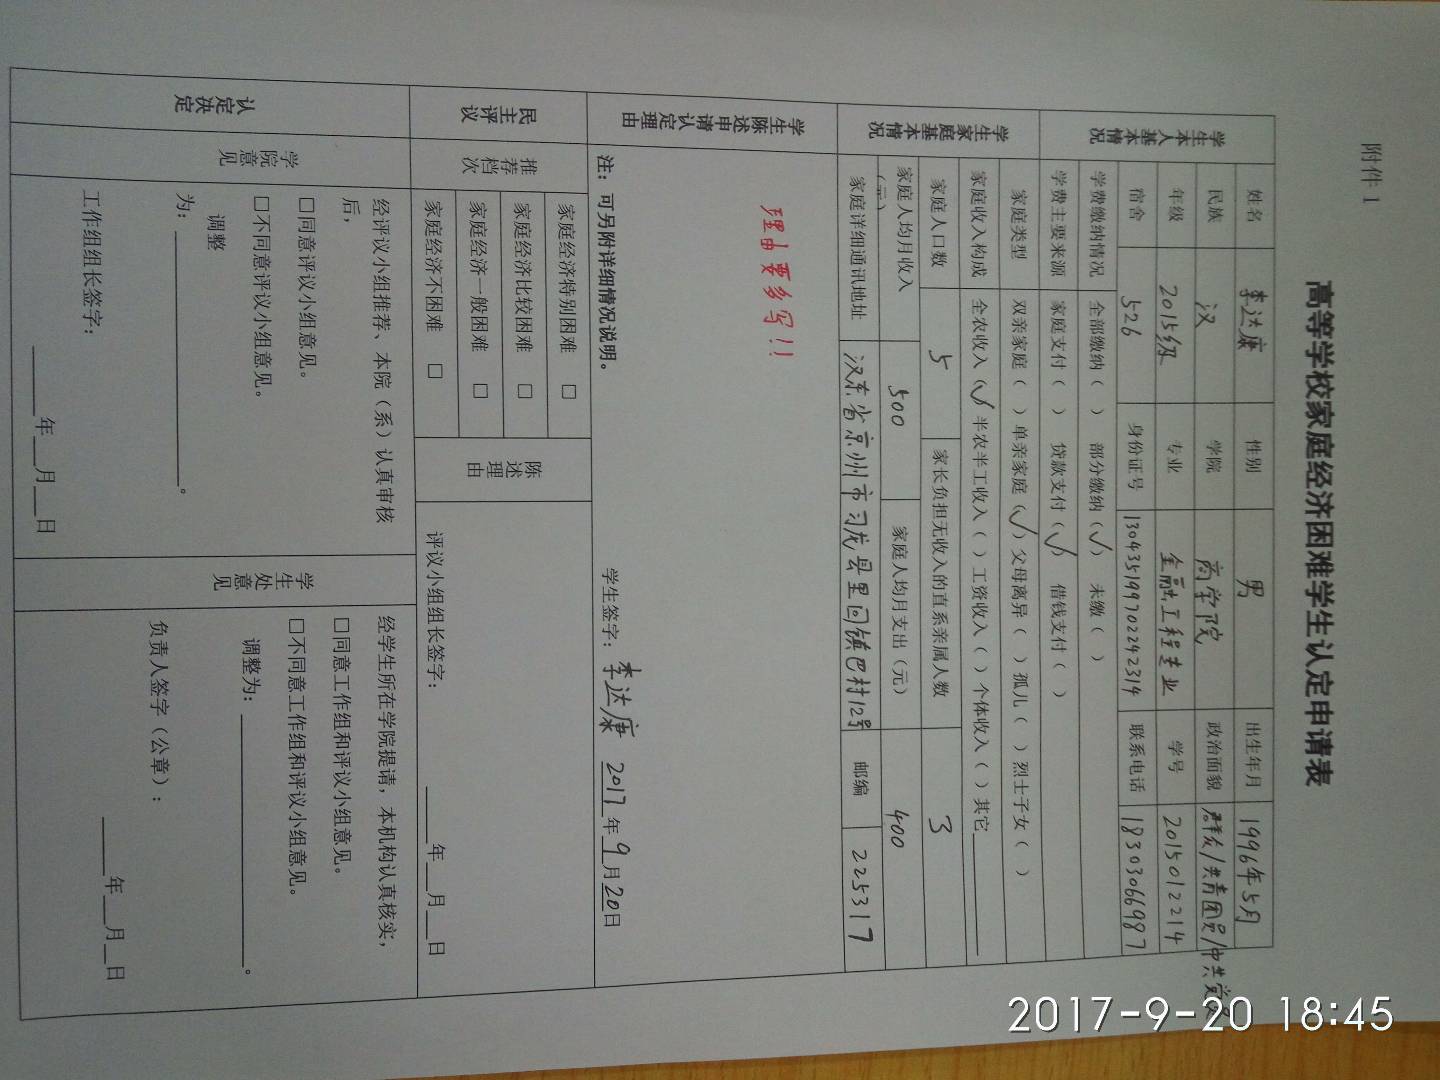 附件1
高等学校家庭经济困难学生认定申请表
学生本人基本情况
姓名 李达康 性别 男 出生年月 1996年5月
民族 汉 学院 商学院 政治面貌 群众/共青团员/中共党员
年级 2015级 专业 金融工程专业 学号 2015012214
宿舍 526 身份证号 130435199702242314 联系电话 18303066987
学费缴纳情况 全部缴纳( ) 部分缴纳(√) 未缴( )
学费主要来源 家庭支付( ) 贷款支付(√) 借钱支付( )
学生家庭基本情况
家庭类型 双亲家庭( ) 单亲家庭(√) 父母离异( ) 孤儿( ) 烈士子女( )
家庭收入构成 全农收入(√) 半农半工收入( ) 工资收入( ) 个体收入( ) 其它______
家庭人口数 5 家长负担无收入的直系亲属人数 3
家庭人均月收入(元) 500 家庭人均月支出(元) 400
家庭详细通讯地址 汉东省京州市习龙县里回镇巴村12号 邮编 225317
学生陈述申请认定理由
理由要多写!!
注:可另附详细情况说明。
学生签字:李达康 2017年9月20日
民主评议
推荐档次
家庭经济特别困难 □
家庭经济比较困难 □
家庭经济一般困难 □
家庭经济不困难 □
陈述理由
评议小组组长签字:
____年__月__日
认定决定
学院意见
经评议小组推荐、本院(系)认真审核
后,
□同意评议小组意见。
□不同意评议小组意见。
调整
为:______________。
工作组组长签字:
____年__月__日
学生处意见
经学生所在学院提请,本机构认真核实,
□同意工作组和评议小组意见。
□不同意工作组和评议小组意见。
调整为:______________。
负责人签字(公章):
____年__月__日
2017-9-20 18:45